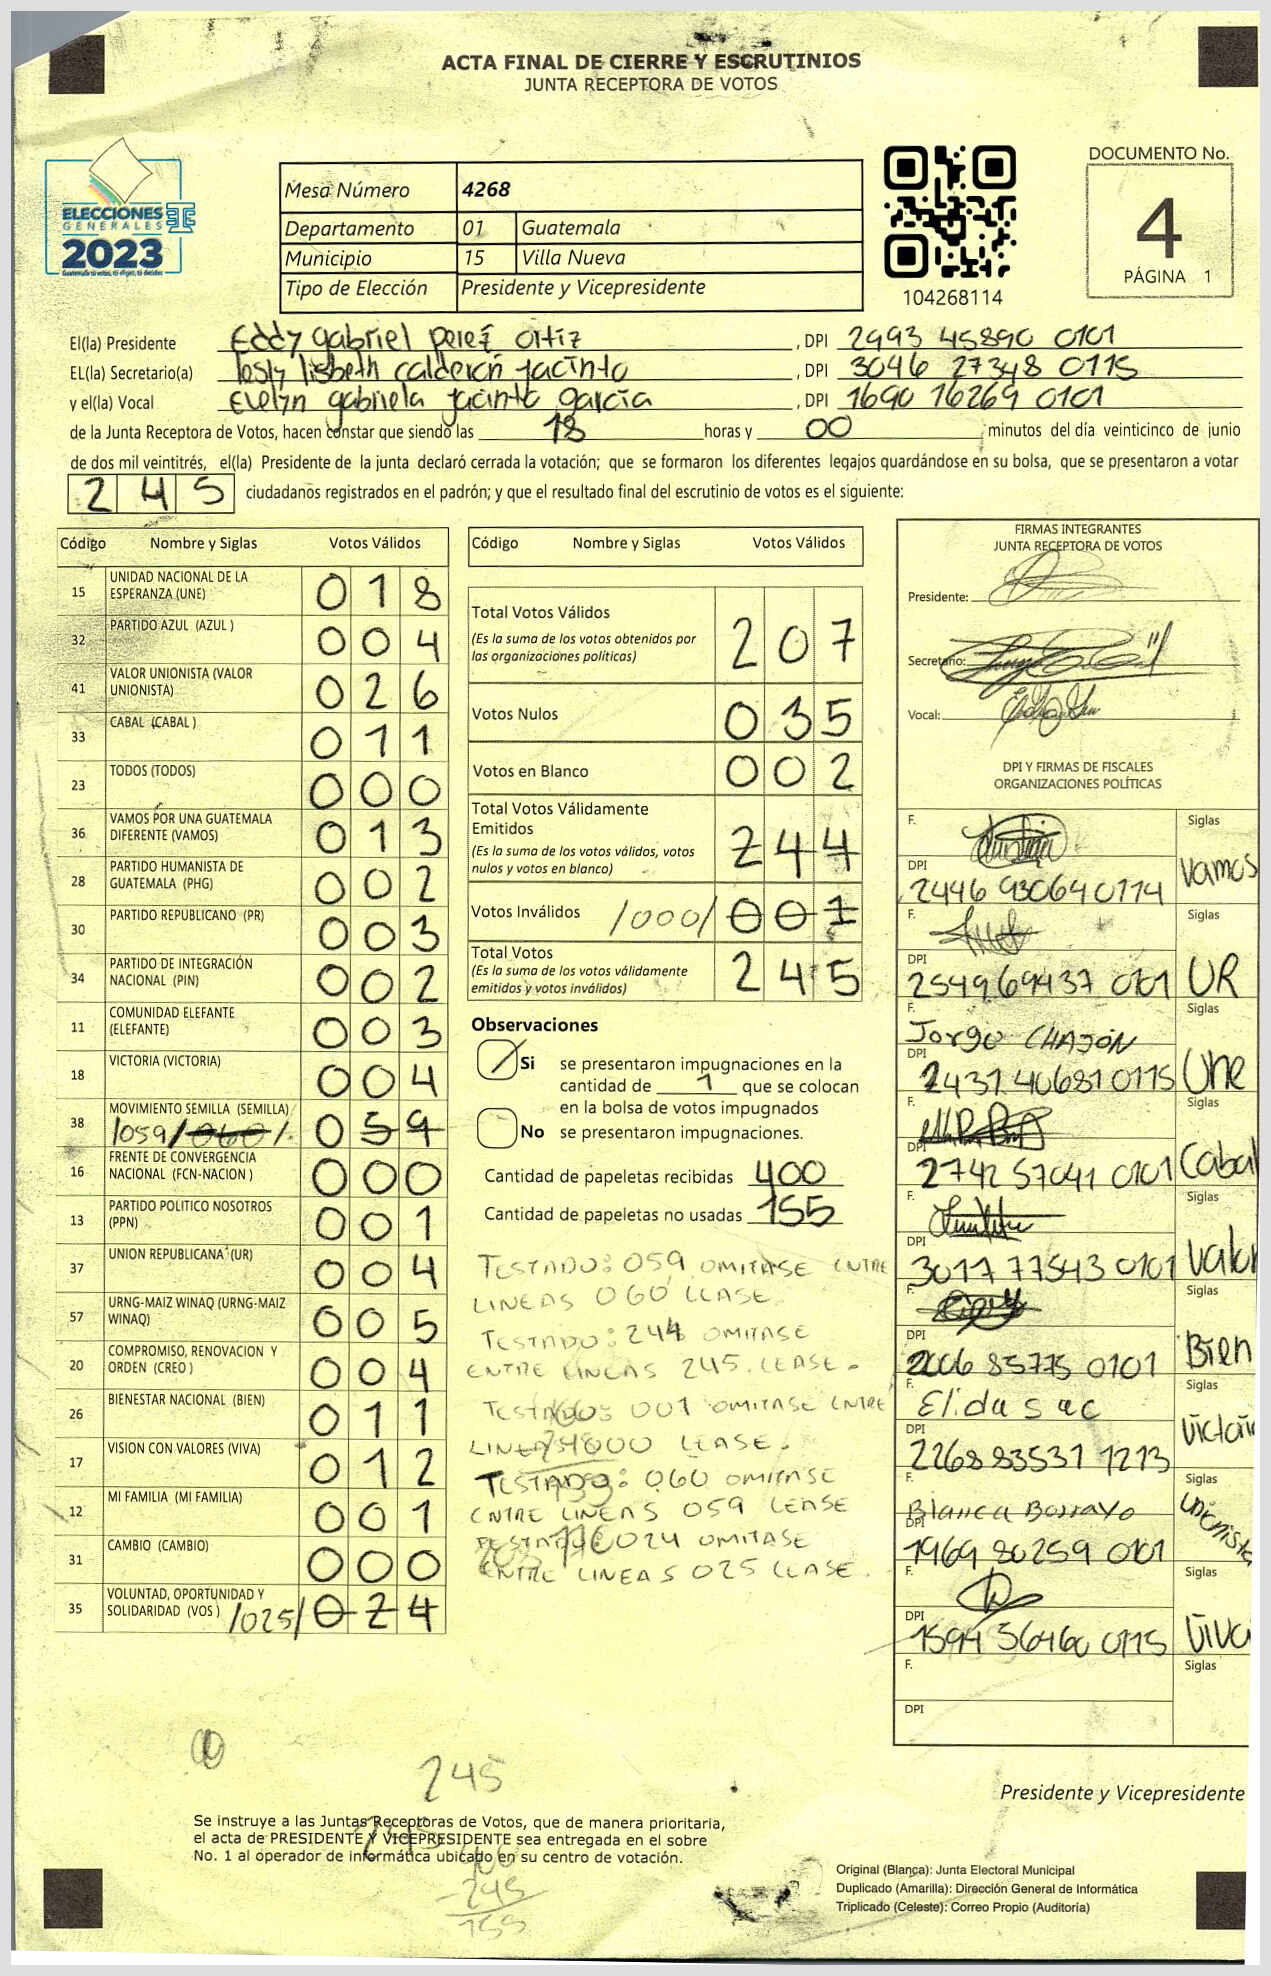 ACTA FINAL DE CIERRE Y ESCRUTINIOS
JUNTA RECEPTORA DE VOTOS
ELECCIONES
GENERALES
2023
Guatemala tú votas, tú eliges, tú decides
Mesa Número 4268
Departamento 01 Guatemala
Municipio 15 Villa Nueva
Tipo de Elección Presidente y Vicepresidente
104268114
DOCUMENTO No.
4
PÁGINA 1
El(la) Presidente Eddy gabriel perez ortiz , DPI 2993 45890 0101
EL(la) Secretario(a) lesly lisbeth calderón jacinto , DPI 3046 27348 0115
y el(la) Vocal Evelyn gabriela jacinto garcía , DPI 1690 16269 0101
de la Junta Receptora de Votos, hacen constar que siendo las 18 horas y 00 minutos del día veinticinco de junio
de dos mil veintitrés, el(la) Presidente de la junta declaró cerrada la votación; que se formaron los diferentes legajos quardándose en su bolsa, que se presentaron a votar
245 ciudadanos registrados en el padrón; y que el resultado final del escrutinio de votos es el siguiente:
Código Nombre y Siglas Votos Válidos
15 UNIDAD NACIONAL DE LA ESPERANZA (UNE) 018
32 PARTIDO AZUL (AZUL ) 004
41 VALOR UNIONISTA (VALOR UNIONISTA) 026
33 CABAL (CABAL ) 011
23 TODOS (TODOS) 000
36 VAMOS POR UNA GUATEMALA DIFERENTE (VAMOS) 013
28 PARTIDO HUMANISTA DE GUATEMALA (PHG) 002
30 PARTIDO REPUBLICANO (PR) 003
34 PARTIDO DE INTEGRACIÓN NACIONAL (PIN) 002
11 COMUNIDAD ELEFANTE (ELEFANTE) 003
18 VICTORIA (VICTORIA) 004
38 MOVIMIENTO SEMILLA (SEMILLA) /059/060/. 059
16 FRENTE DE CONVERGENCIA NACIONAL (FCN-NACION ) 000
13 PARTIDO POLITICO NOSOTROS (PPN) 001
37 UNION REPUBLICANA (UR) 004
57 URNG-MAIZ WINAQ (URNG-MAIZ WINAQ) 005
20 COMPROMISO, RENOVACION Y ORDEN (CREO ) 004
26 BIENESTAR NACIONAL (BIEN) 011
17 VISION CON VALORES (VIVA) 012
12 MI FAMILIA (MI FAMILIA) 001
31 CAMBIO (CAMBIO) 000
35 VOLUNTAD, OPORTUNIDAD Y SOLIDARIDAD (VOS ) /025/ 024
Código Nombre y Siglas Votos Válidos
Total Votos Válidos 207
(Es la suma de los votos obtenidos por
las organizaciones politicas)
Votos Nulos 035
Votos en Blanco 002
Total Votos Válidamente
Emitidos 244
(Es la suma de los votos válidos, votos
nulos y votos en blanco)
Votos Inválidos /000/ 001
Total Votos 245
(Es la suma de los votos válidamente
emitidos y votos inválidos)
Observaciones
Si se presentaron impugnaciones en la
cantidad de 1 que se colocan
en la bolsa de votos impugnados
No se presentaron impugnaciones.
Cantidad de papeletas recibidas 400
Cantidad de papeletas no usadas 155
TESTADO: 059 OMITASE ENTRE
LINEAS 060 LEASE
TESTADO: 244 OMITASE
ENTRE LINEAS 245. LEASE.
TESTADO: 001 OMITASE ENTRE
LINEAS 000 LEASE.
TESTADO: 060 OMITASE
ENTRE LINEAS 059 LEASE
TESTADO: 024 OMITASE
ENTRE LINEAS 025 LEASE.
FIRMAS INTEGRANTES
JUNTA RECEPTORA DE VOTOS
Presidente:
Secretario:
Vocal:
DPI Y FIRMAS DE FISCALES
ORGANIZACIONES POLÍTICAS
F. Siglas
DPI 2446 93064 0114 Vamos
F. Siglas
DPI 2549 69437 0101 UR
F. Jorge CHAJÓN Siglas
DPI 2431 40681 0115 Une
F. Siglas
DPI 2742 57041 0101 Cabal
F. Siglas
DPI 3017 77543 0101 Valor
F. Siglas
DPI 2006 85775 0101 Bien
F. Elida sac Siglas
DPI 2268 83531 1213
F. Blanca Borrayo Siglas
DPI 1969 80259 0101 unionista
F. Siglas
DPI 1594 56460 0115 Viva
F. Siglas
DPI
245
245
400
-245
155
Presidente y Vicepresidente
Se instruye a las Juntas Receptoras de Votos, que de manera prioritaria,
el acta de PRESIDENTE Y VICEPRESIDENTE sea entregada en el sobre
No. 1 al operador de informática ubicado en su centro de votación.
Original (Blanca): Junta Electoral Municipal
Duplicado (Amarilla): Dirección General de Informática
Triplicado (Celeste): Correo Propio (Auditoría)